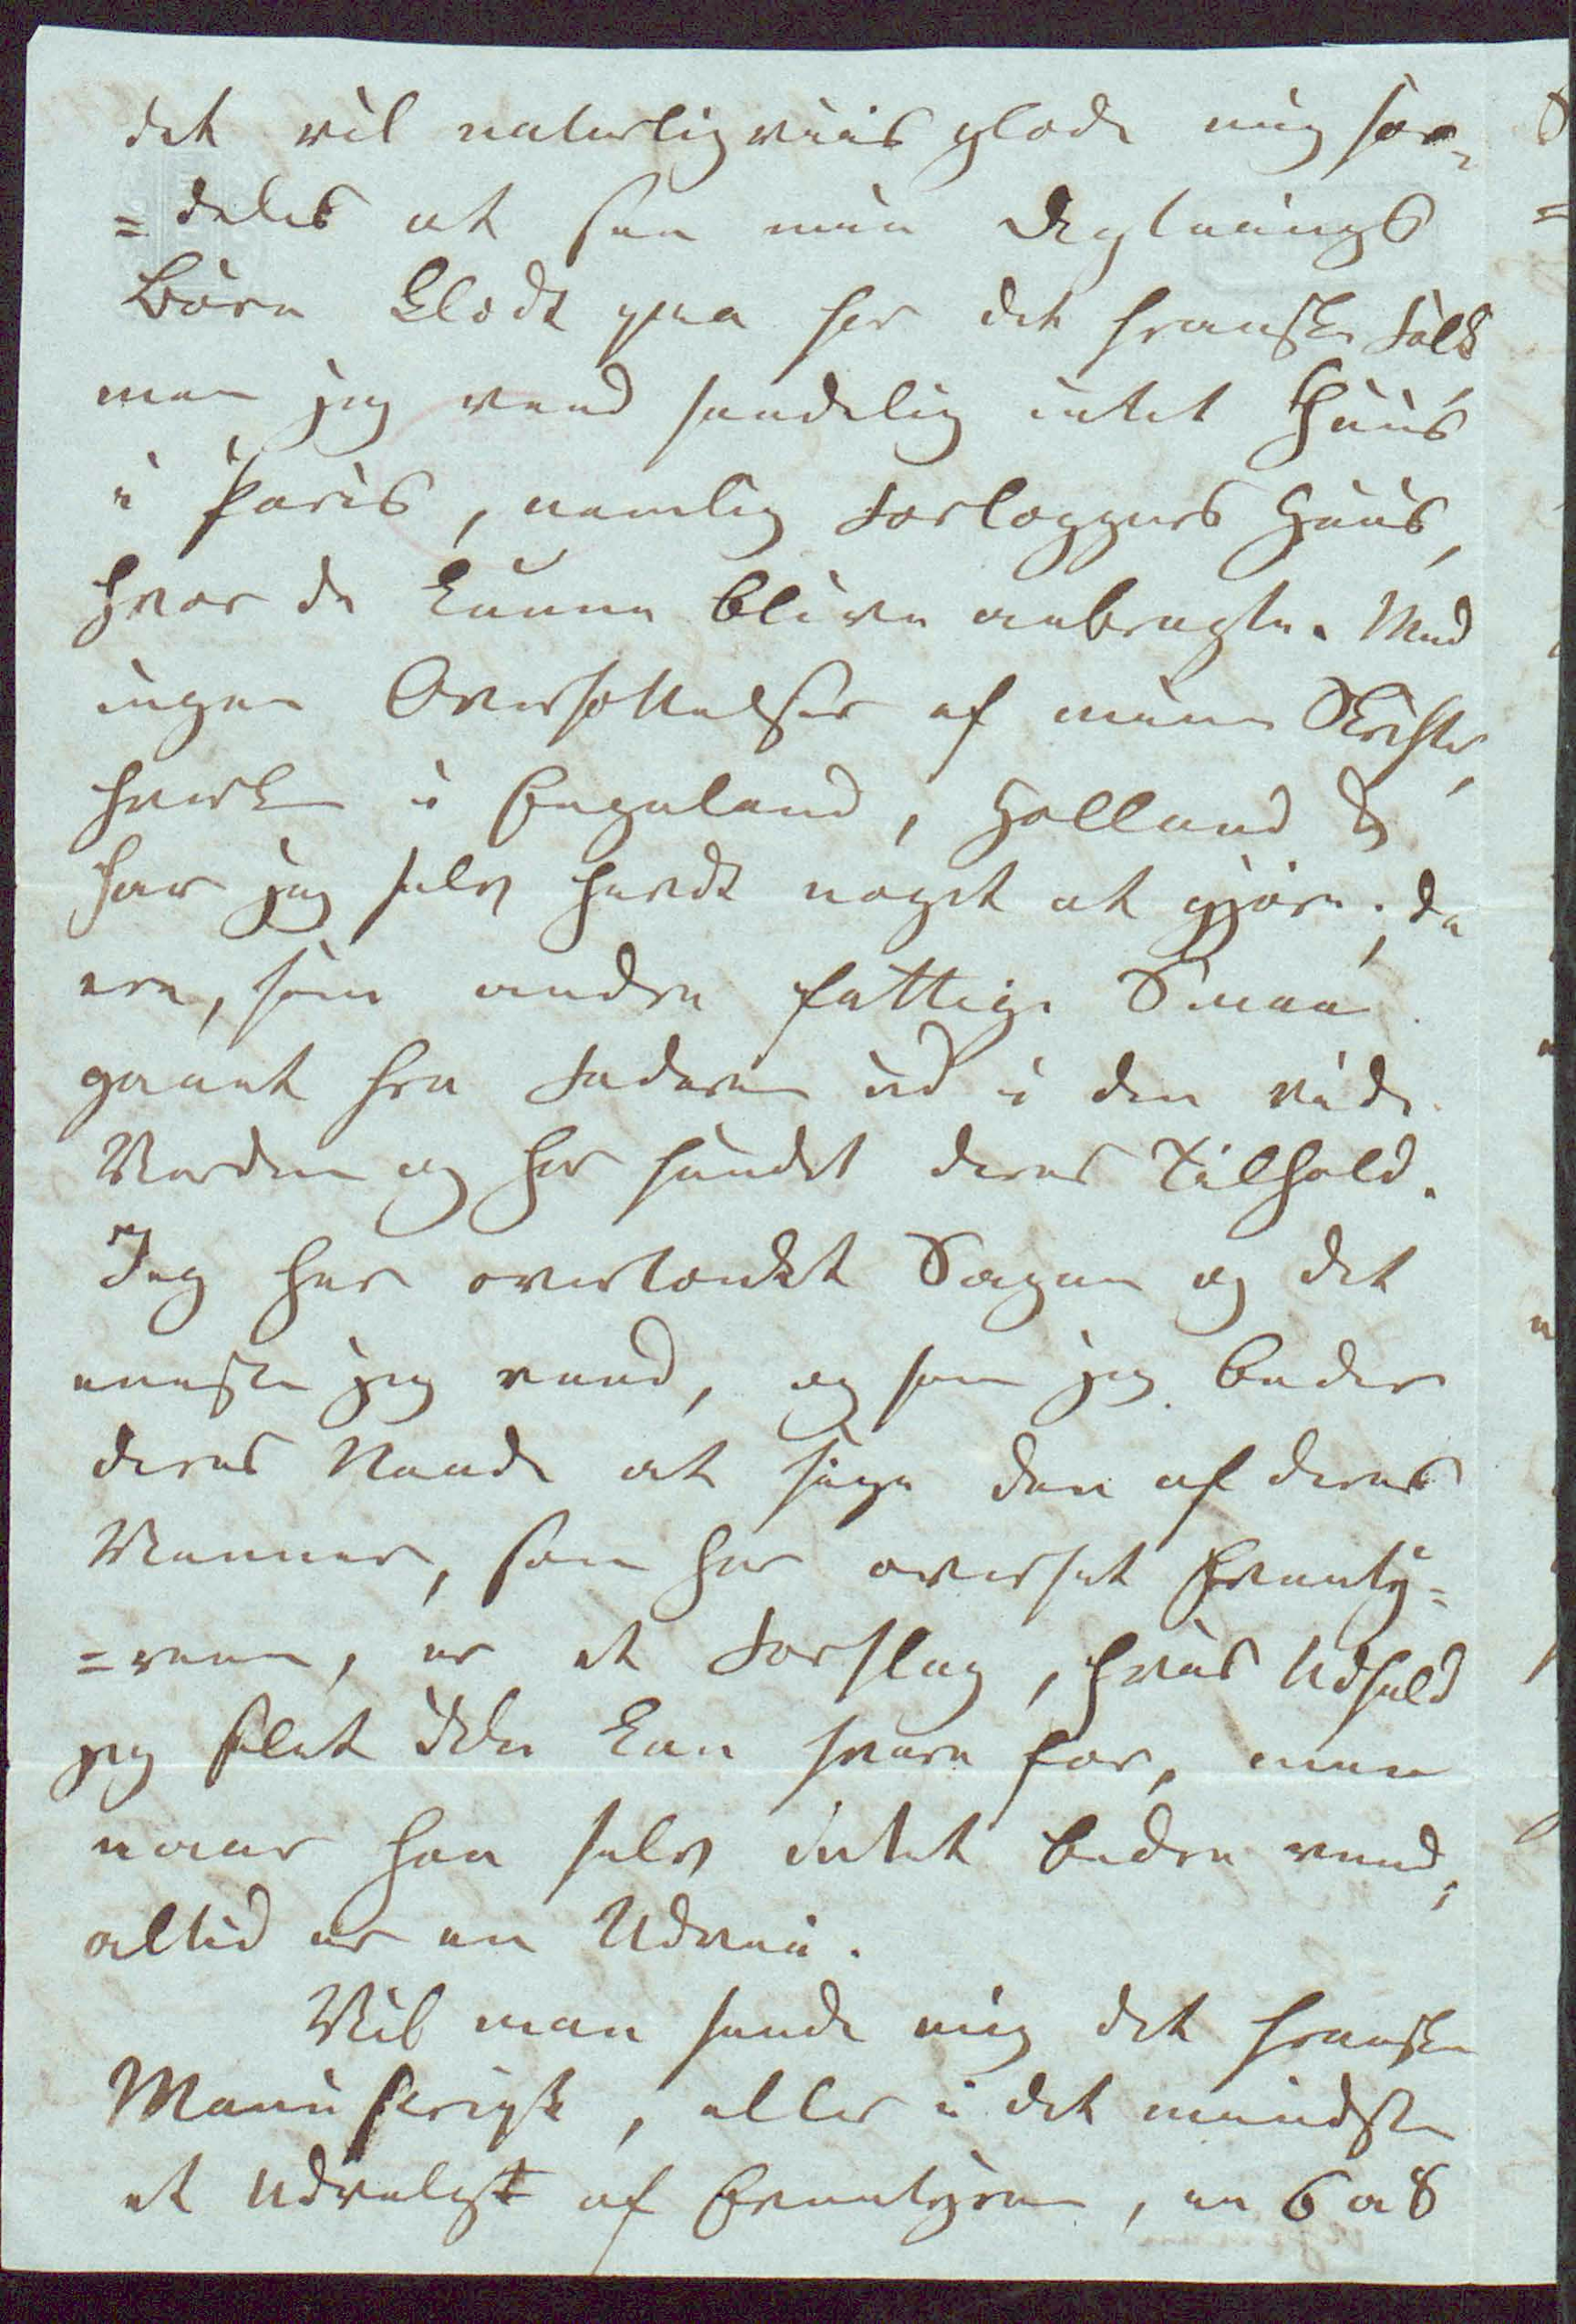 det vil naturligviis glæde mig sær-
=deles at see mine Digtnings
Børn klædt paa for det franske Folk
men jeg veed sandelig intet Huus
i Paris, nemlig Forlæggers Huus,
hvor de kunne blive anbragte. Med
ingen Oversættelser af mine Skrifter,
hverken i Engeland, Holland &
har jeg selv havdt noget at gjøre; de
ere, som andre fattige Smaa
gaaet fra Faderen ud i den vide
Verden og har fundet deres Tilhold.
Jeg har overtænkt Sagen og det
eneste jeg veed, og som jeg beder
deres Naade at sige den af deres
Venner, som har oversat Eventy-
=rene, er et Forslag, hvis Udfald
jeg slet ikke kan svare for, men
naar han selv intet bedre veed,
altid er en Udvei.
Vil man sende mig det franske
Manuskript, eller i det mindste
et Udvalgt af Eventyrene, en 6 a 8